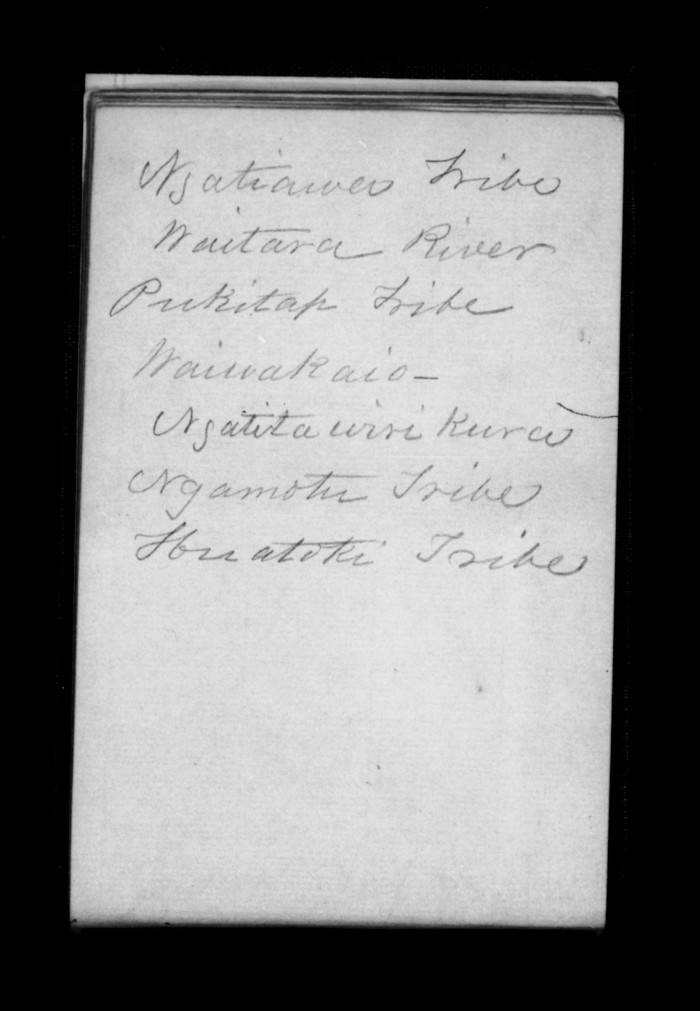 Ngatiawa Tribe
Waitara River
Pukitap Tribe
Waiwakaio -
Ngatitawiri Kura
Ngamotu Tribe
Huatoki Tribe